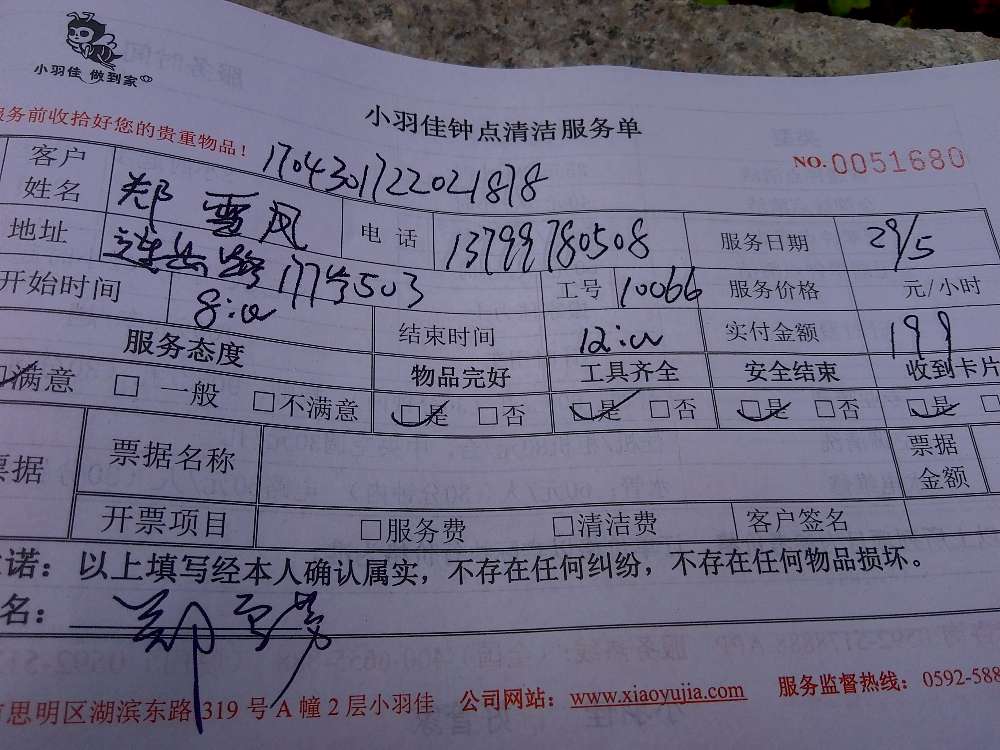 小羽佳 做到家
服务前收拾好您的贵重物品！
小羽佳钟点清洁服务单
NO.0051680
1704301722021878
客户姓名 郑雪凤 电话 13799780508 服务日期 29/5
地址 莲岳路177号503 工号 10066 服务价格 元/小时
开始时间 8:00 结束时间 12:00 实付金额 199
服务态度 物品完好 工具齐全 安全结束 收到卡片
□满意 □一般 □不满意 □是 □否 □是 □否 □是 □否 □是
票据 票据名称 票据金额
开票项目 □服务费 □清洁费 客户签名
诺：以上填写经本人确认属实，不存在任何纠纷，不存在任何物品损坏。
名：
思明区湖滨东路319号A幢2层小羽佳 公司网站：www.xiaoyujia.com 服务监督热线：0592-588